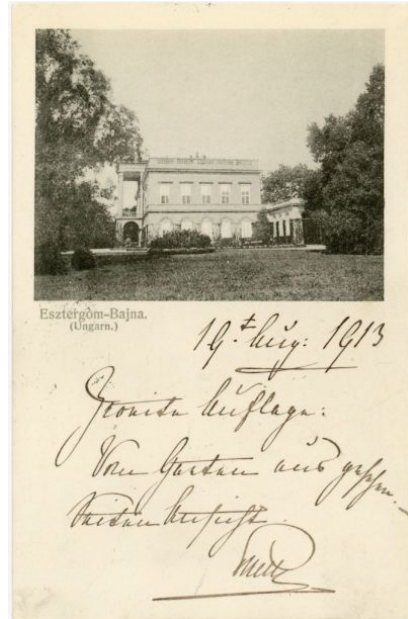 Esztergom-Bajna.
(Ungarn.)
19.t Aug: 1913
Zweite Auflage:
Vom Garten aus gesehen.
Seiten Ansicht.